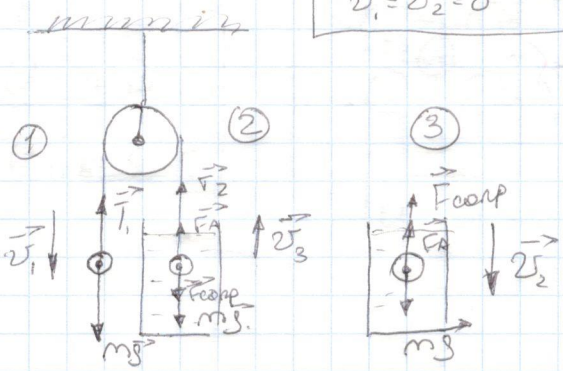 υ₁ = υ₂ = υ
① ② ③
T₁ T₂ F_A υ₁ υ₃
Fсопр
mg
mg
Fсопр
F_A
υ₂
mg